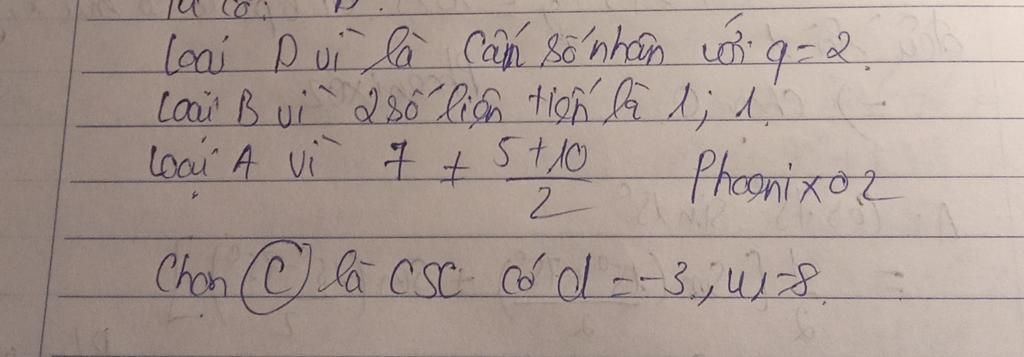 Loại D vì là Cấp số nhân với q = 2.
Loại B vì 2 số liên tiến là 1; 1.
Loại A vì 7 ≠ \frac{5+10}{2} Phoenix02
Chọn C là CSC có d = -3, u1=8.